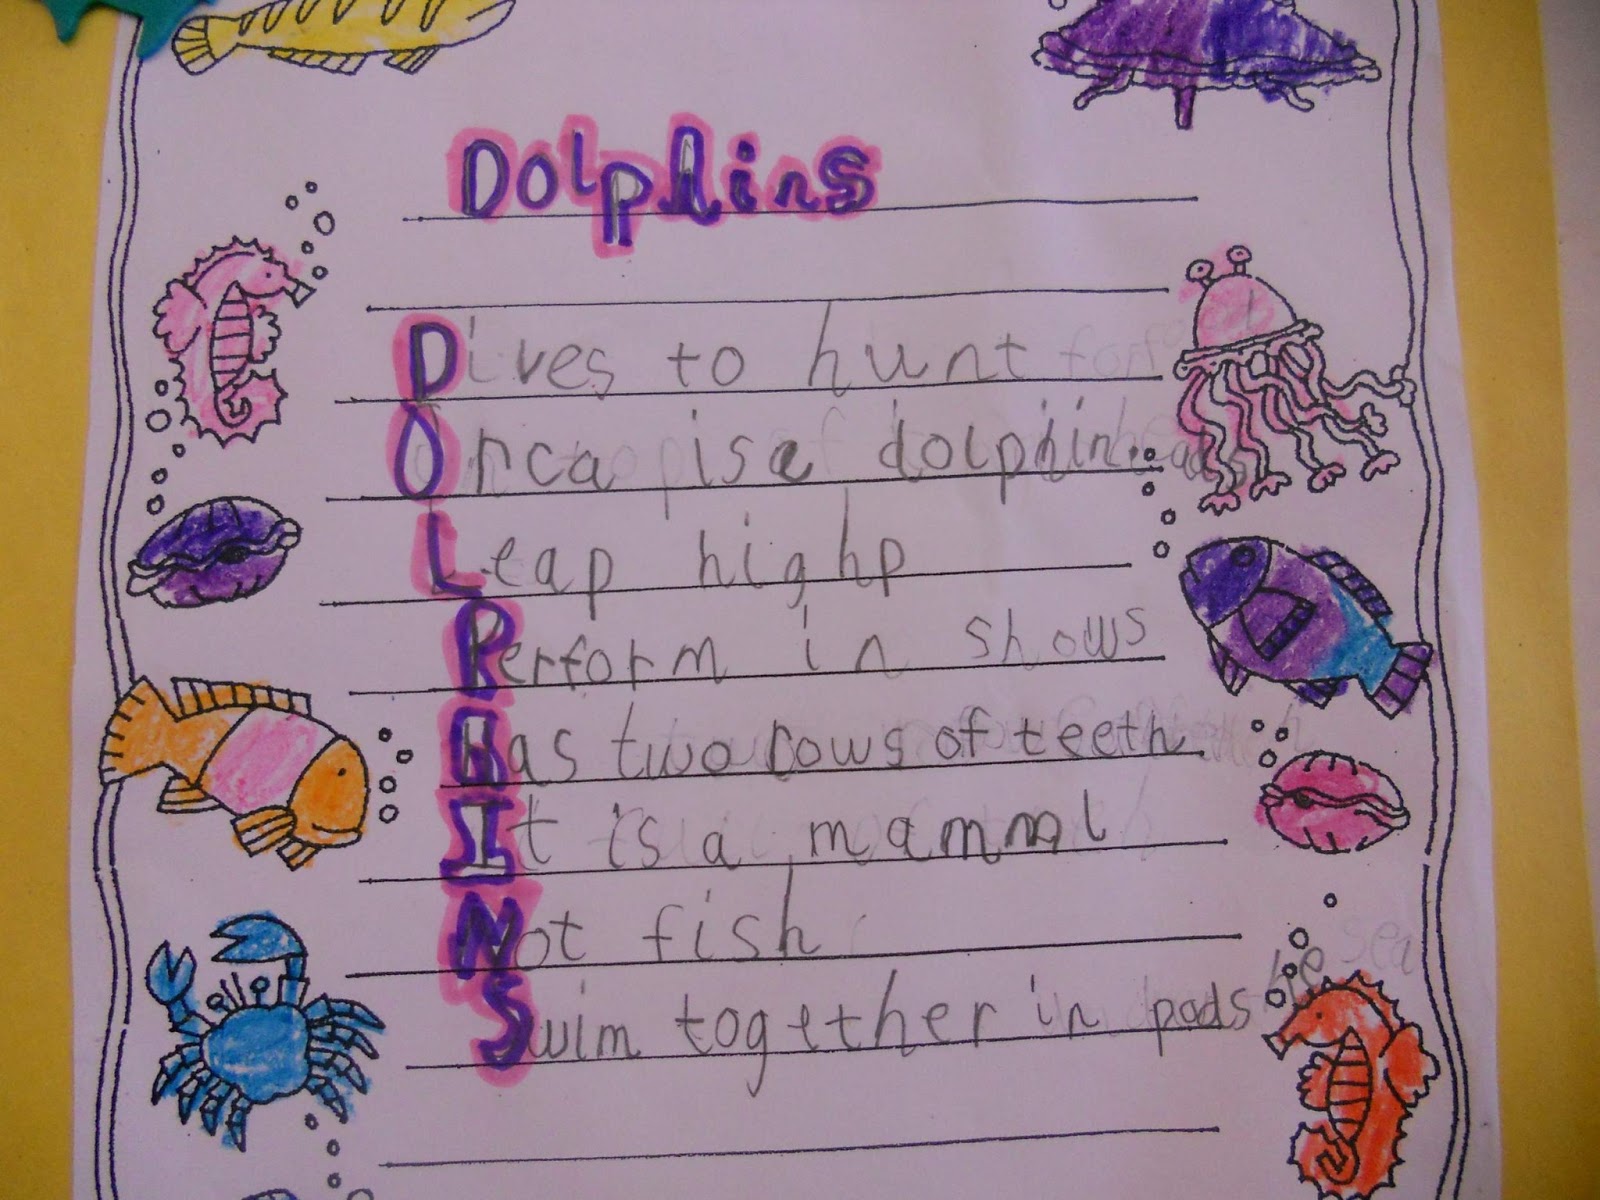 Dolphins
Dives to hunt for food
Orca is a dolphin.
Leap highp
Perform in shows
Has two rows of teeth
It is a mammal
Not fish
Swim together in pods